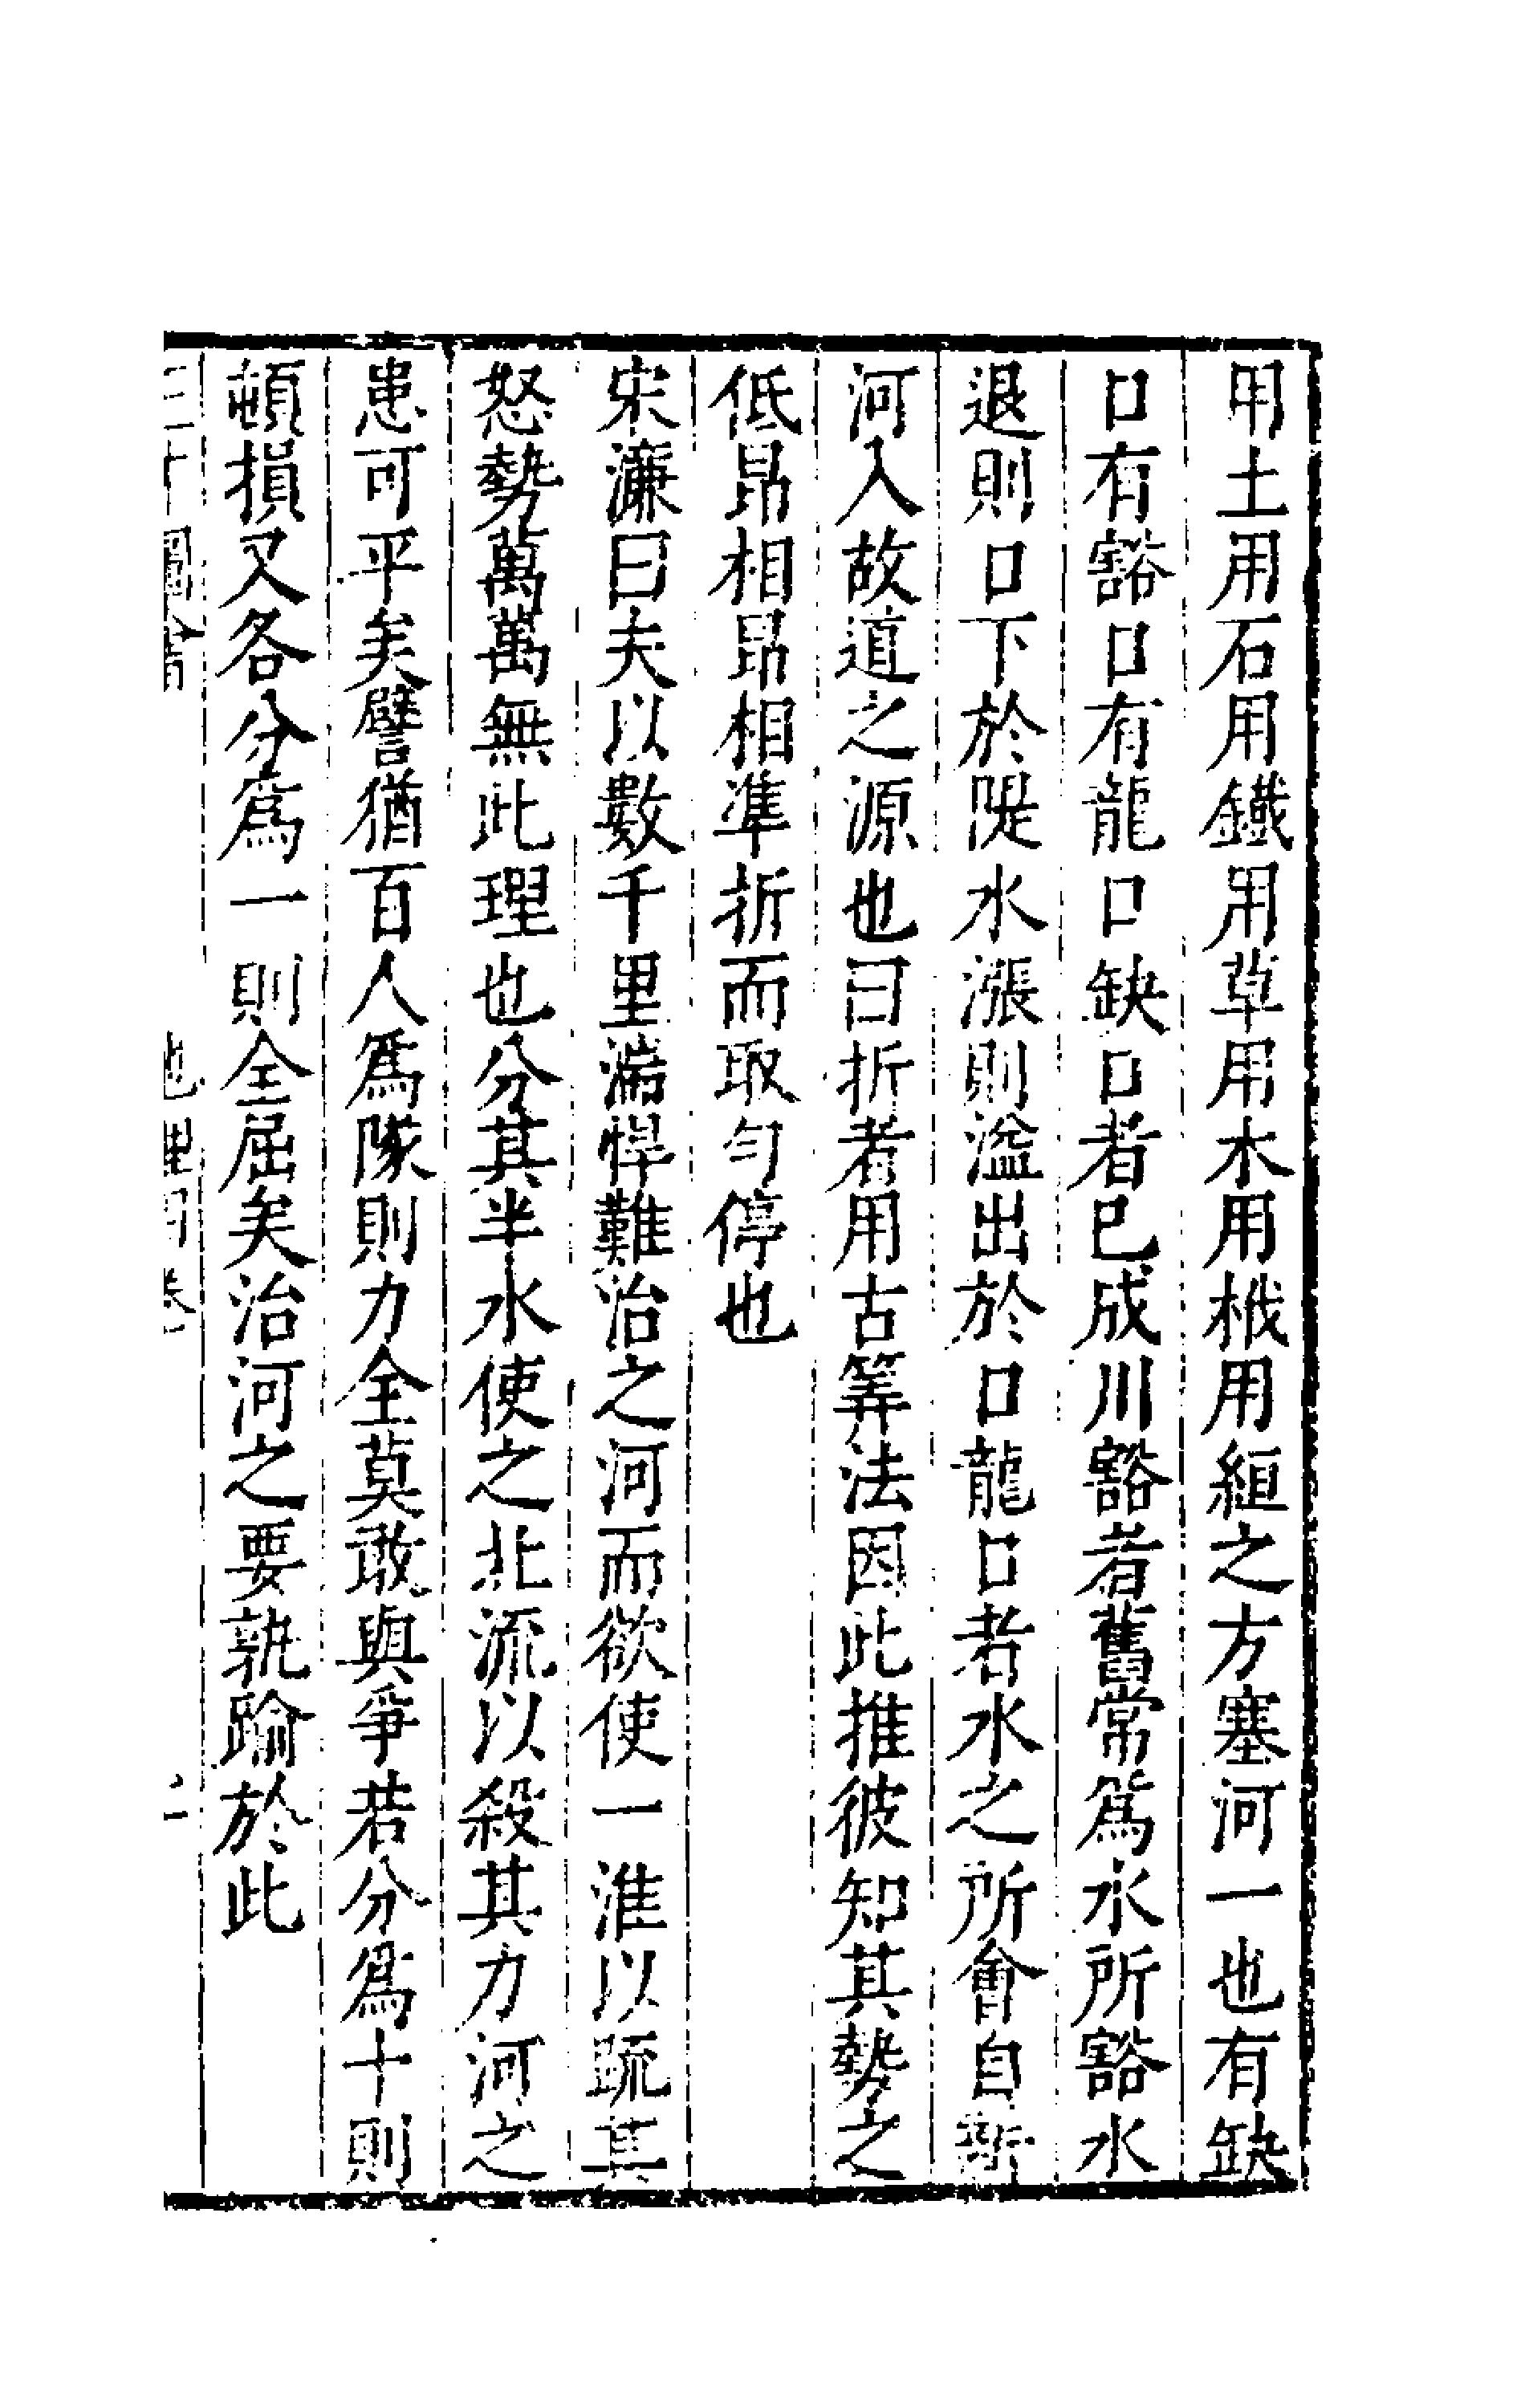 用土用石用鐵用草用木用栰用絙之方塞河一也有缺
口有豁口有龍口缺口者已成川豁者舊常爲水所豁水
退則口下於隄水漲則溢出於口龍口者水之所會自新
河入故道之源也曰折者用古筭法因此推彼知其勢之
低昂相昂相準折而取勻停也
宋濂曰夫以數千里湍悍難治之河而欲使一淮以疏其
怒勢萬萬無此理也分其半水使之北流以殺其力河之
患可平矣譬猶百人爲隊則力全莫敢與爭若分爲十則
頓損又各分爲一則全屈矣治河之要孰踰於此